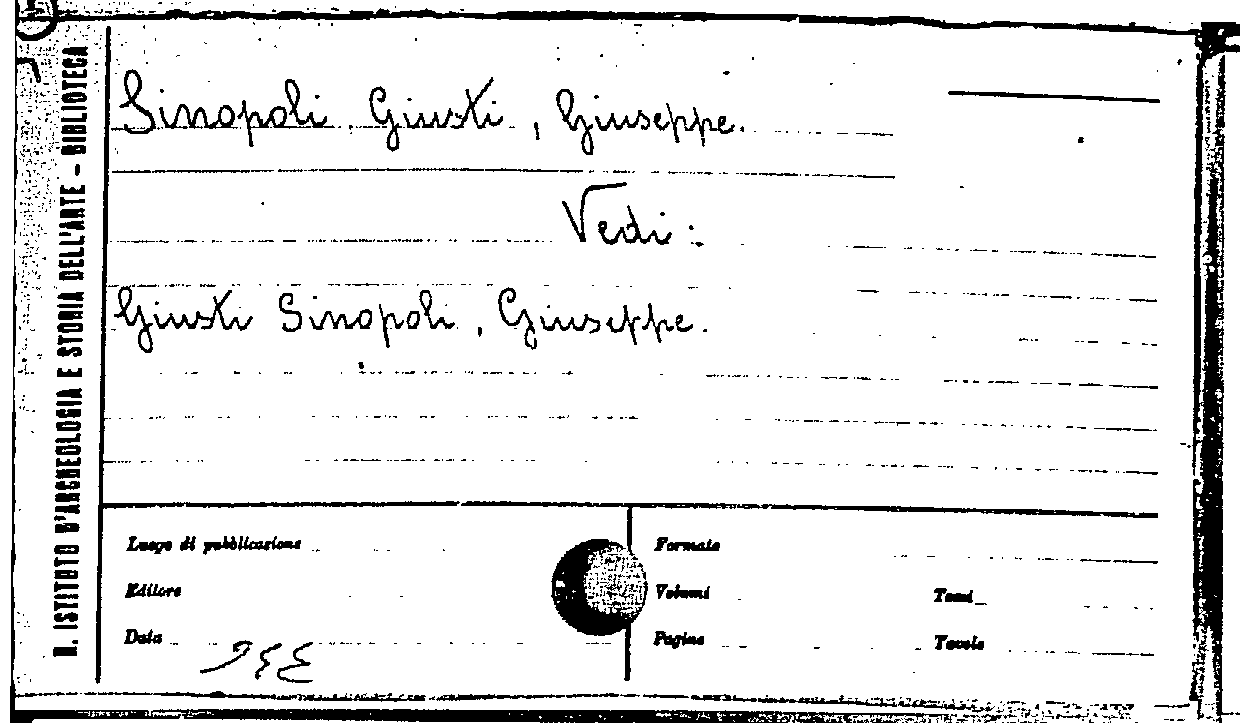 R. ISTITUTO D'ARCHEOLOGIA E STORIA DELL'ARTE - BIBLIOTECA
Sinopoli Giusti, Giuseppe.
Vedi:
Giusti Sinopoli, Giuseppe.
Luogo di pubblicazione
Editore
Data
Formato
Volumi
Tomi
Pagine
Tavole